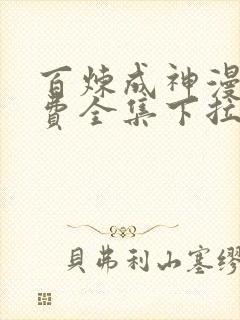 百炼成神漫
费全集下拉
貝弗利山塞繆